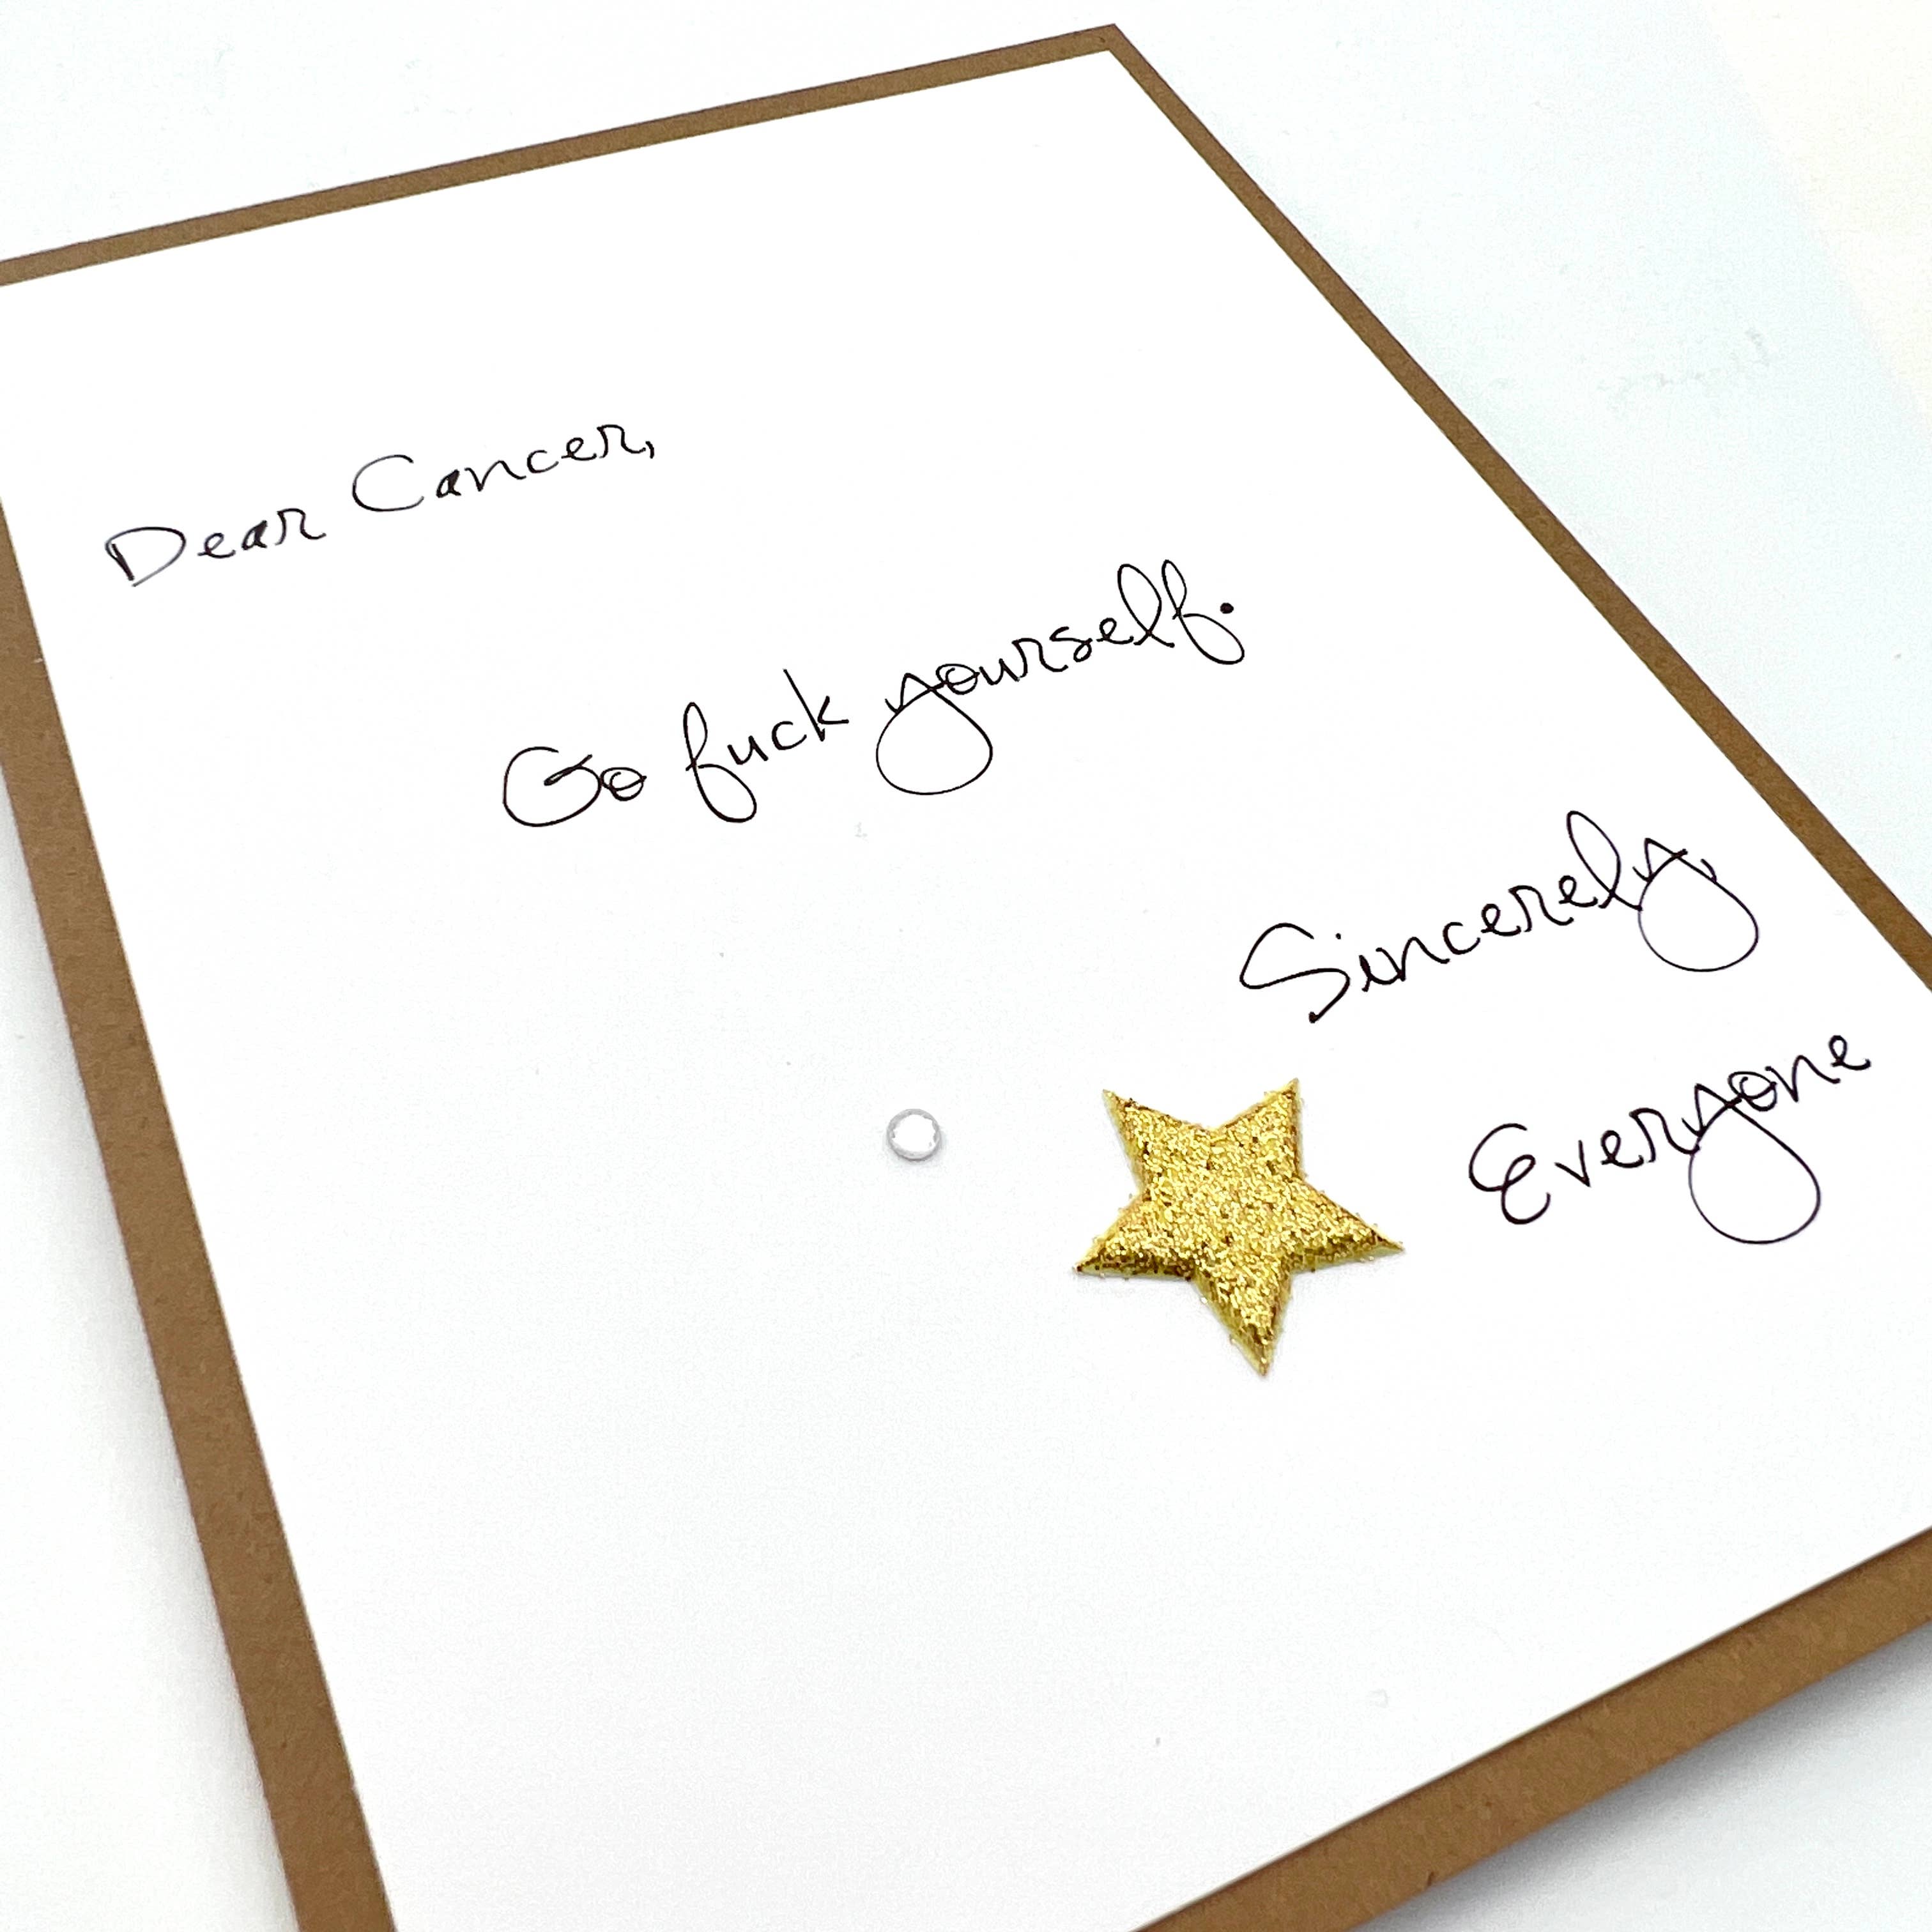 Dear Cancer,
Go fuck yourself.
Sincerely,
Everyone